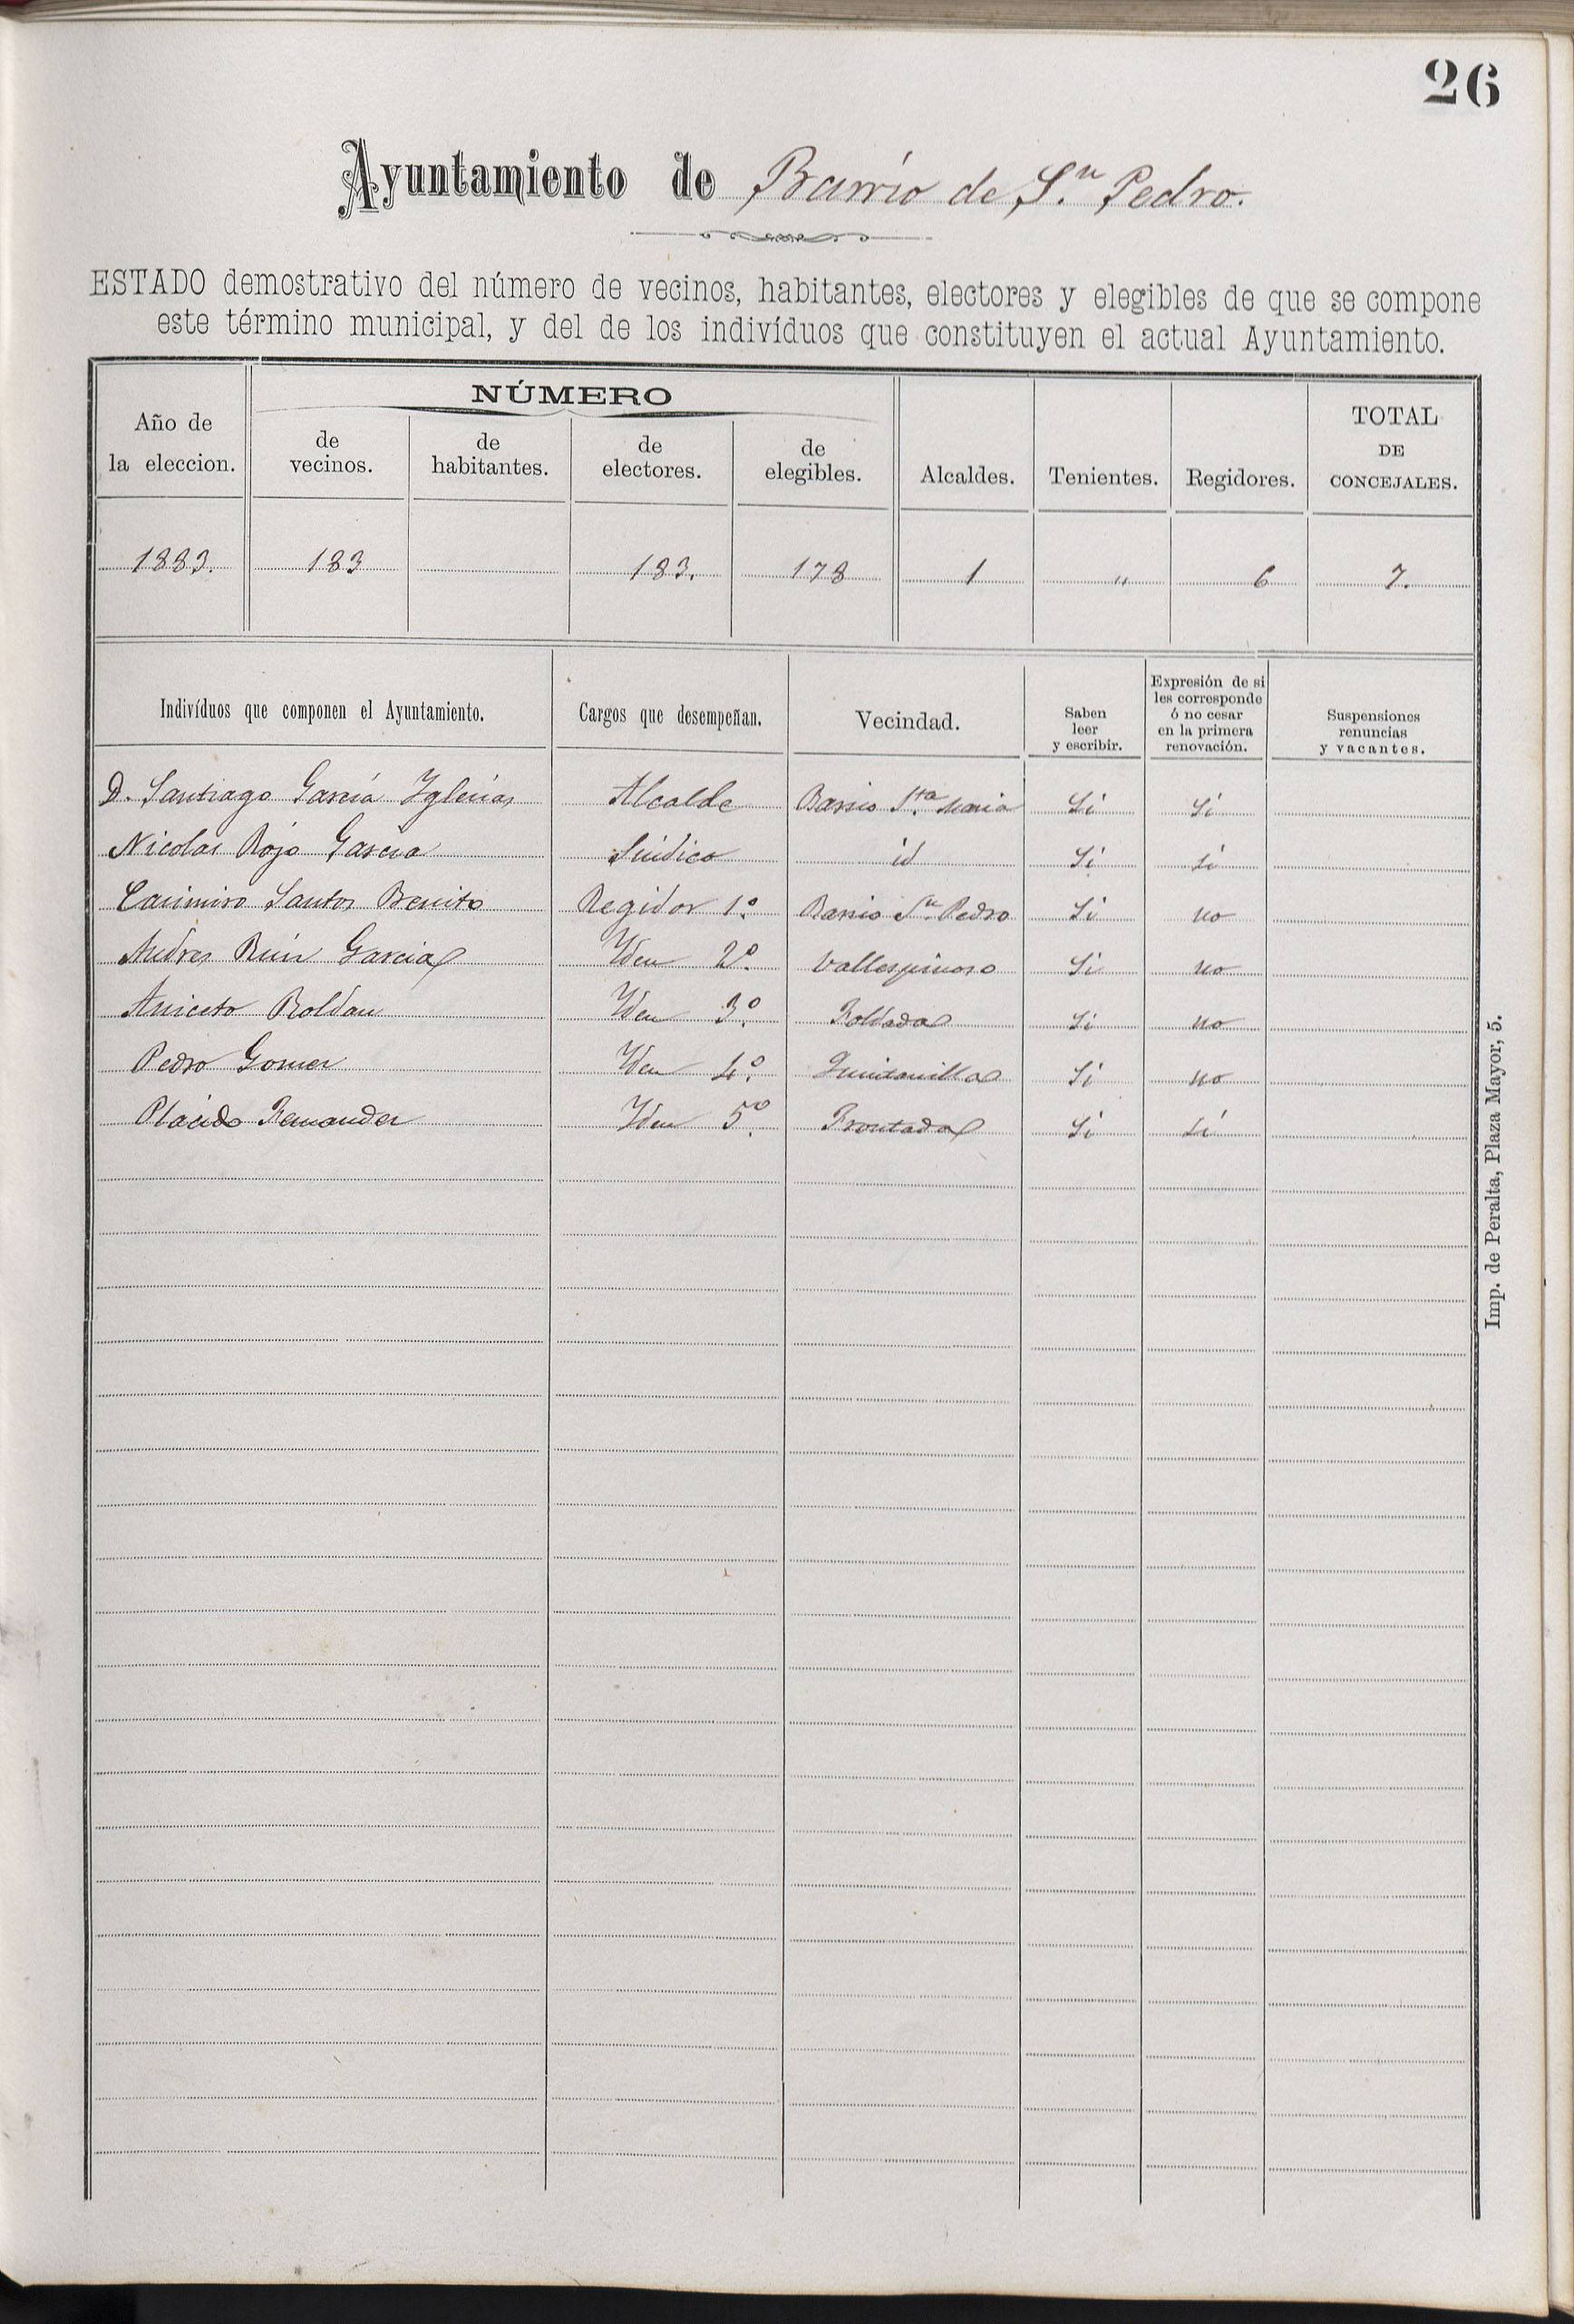 26
Ayuntamiento de Barrio de S.n Pedro.
ESTADO demostrativo del número de vecinos, habitantes, electores y elegibles de que se compone
este término municipal, y del de los indivíduos que constituyen el actual Ayuntamiento.
NÚMERO
Año de la eleccion. de vecinos. de habitantes. de electores. de elegibles. Alcaldes. Tenientes. Regidores. TOTAL DE CONCEJALES.
1883. 183 183. 178 1 " 6 7.
Indivíduos que componen el Ayuntamiento. Cargos que desempeñan. Vecindad. Saben leer y escribir. Expresión de si les corresponde ó no cesar en la primera renovación. Suspensiones renuncias y vacantes.
D. Santiago García Iglesias Alcalde Barrio S.ta Maria Si Si
Nicolas Rojo Garcia Sindico id Si Si
Casimiro Santos Benito Regidor 1.º Barrio S.n Pedro Si no
Andres Ruiz Garcia Iden 2.º Vallespinoso Si no
Aniceto Roldan Iden 3.º Foldada Si no
Pedro Gomez Iden 4.º Quintanilla Si no
Placido Fernandez Iden 5.º Frontada Si Si
Imp. de Peralta, Plaza Mayor, 5.